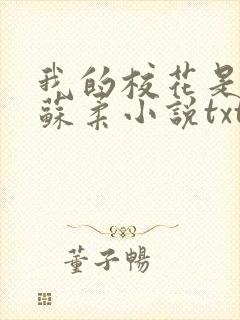 我的校花是
蘇柔小說txt
董子暢